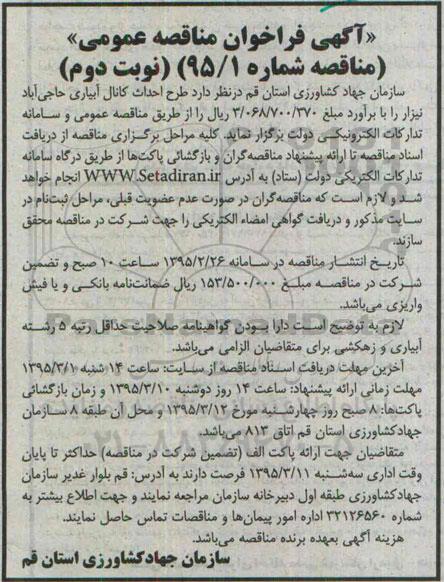 «آگهی فراخوان مناقصه عمومی»
(مناقصه شماره ۹۵/۱) (نوبت دوم)
سازمان جهاد کشاورزی استان قم درنظر دارد طرح احداث کانال آبیاری حاجی‌آباد
نیزار را با برآورد مبلغ ۳/۰۶۸/۷۰۰/۳۷۰ ریال را از طریق مناقصه عمومی و سامانه
تدارکات الکترونیکی دولت برگزار نماید. کلیه مراحل برگزاری مناقصه از دریافت
اسناد مناقصه تا ارائه پیشنهاد مناقصه‌گران و بازگشائی پاکت‌ها از طریق درگاه سامانه
تدارکات الکتریکی دولت (ستاد) به آدرس WWW.Setadiran.ir انجام خواهد
شد و لازم است که مناقصه‌گران در صورت عدم عضویت قبلی، مراحل ثبت‌نام در
سایت مذکور و دریافت گواهی امضاء الکتریکی را جهت شرکت در مناقصه محقق
سازند.
تاریخ انتشار مناقصه در سامانه ۱۳۹۵/۲/۲۶ ساعت ۱۰ صبح و تضمین
شرکت در مناقصه مبلغ ۱۵۳/۵۰۰/۰۰۰ ریال ضمانت‌نامه بانکی و یا فیش
واریزی می‌باشد.
لازم به توضیح است دارا بودن گواهینامه صلاحیت حداقل رتبه ۵ رشته
آبیاری و زهکشی برای متقاضیان الزامی می‌باشد.
آخرین مهلت دریافت اسناد مناقصه از سایت: ساعت ۱۴ شنبه ۱۳۹۵/۳/۱
مهلت زمانی ارائه پیشنهاد: ساعت ۱۴ روز دوشنبه ۱۳۹۵/۳/۱۰ و زمان بازگشائی
پاکت‌ها: ۸ صبح روز چهارشنبه مورخ ۱۳۹۵/۳/۱۲ و محل آن طبقه ۸ سازمان
جهادکشاورزی استان قم اتاق ۸۱۳ می‌باشد.
متقاضیان جهت ارائه پاکت الف (تضمین شرکت در مناقصه) حداکثر تا پایان
وقت اداری سه‌شنبه ۱۳۹۵/۳/۱۱ فرصت دارند به آدرس: قم بلوار غدیر سازمان
جهادکشاورزی طبقه اول دبیرخانه سازمان مراجعه نمایند و جهت اطلاع بیشتر به
شماره ۳۲۱۲۶۵۶۰ اداره امور پیمان‌ها و مناقصات تماس حاصل نمایند.
هزینه آگهی بعهده برنده مناقصه می‌باشد.
سازمان جهادکشاورزی استان قم